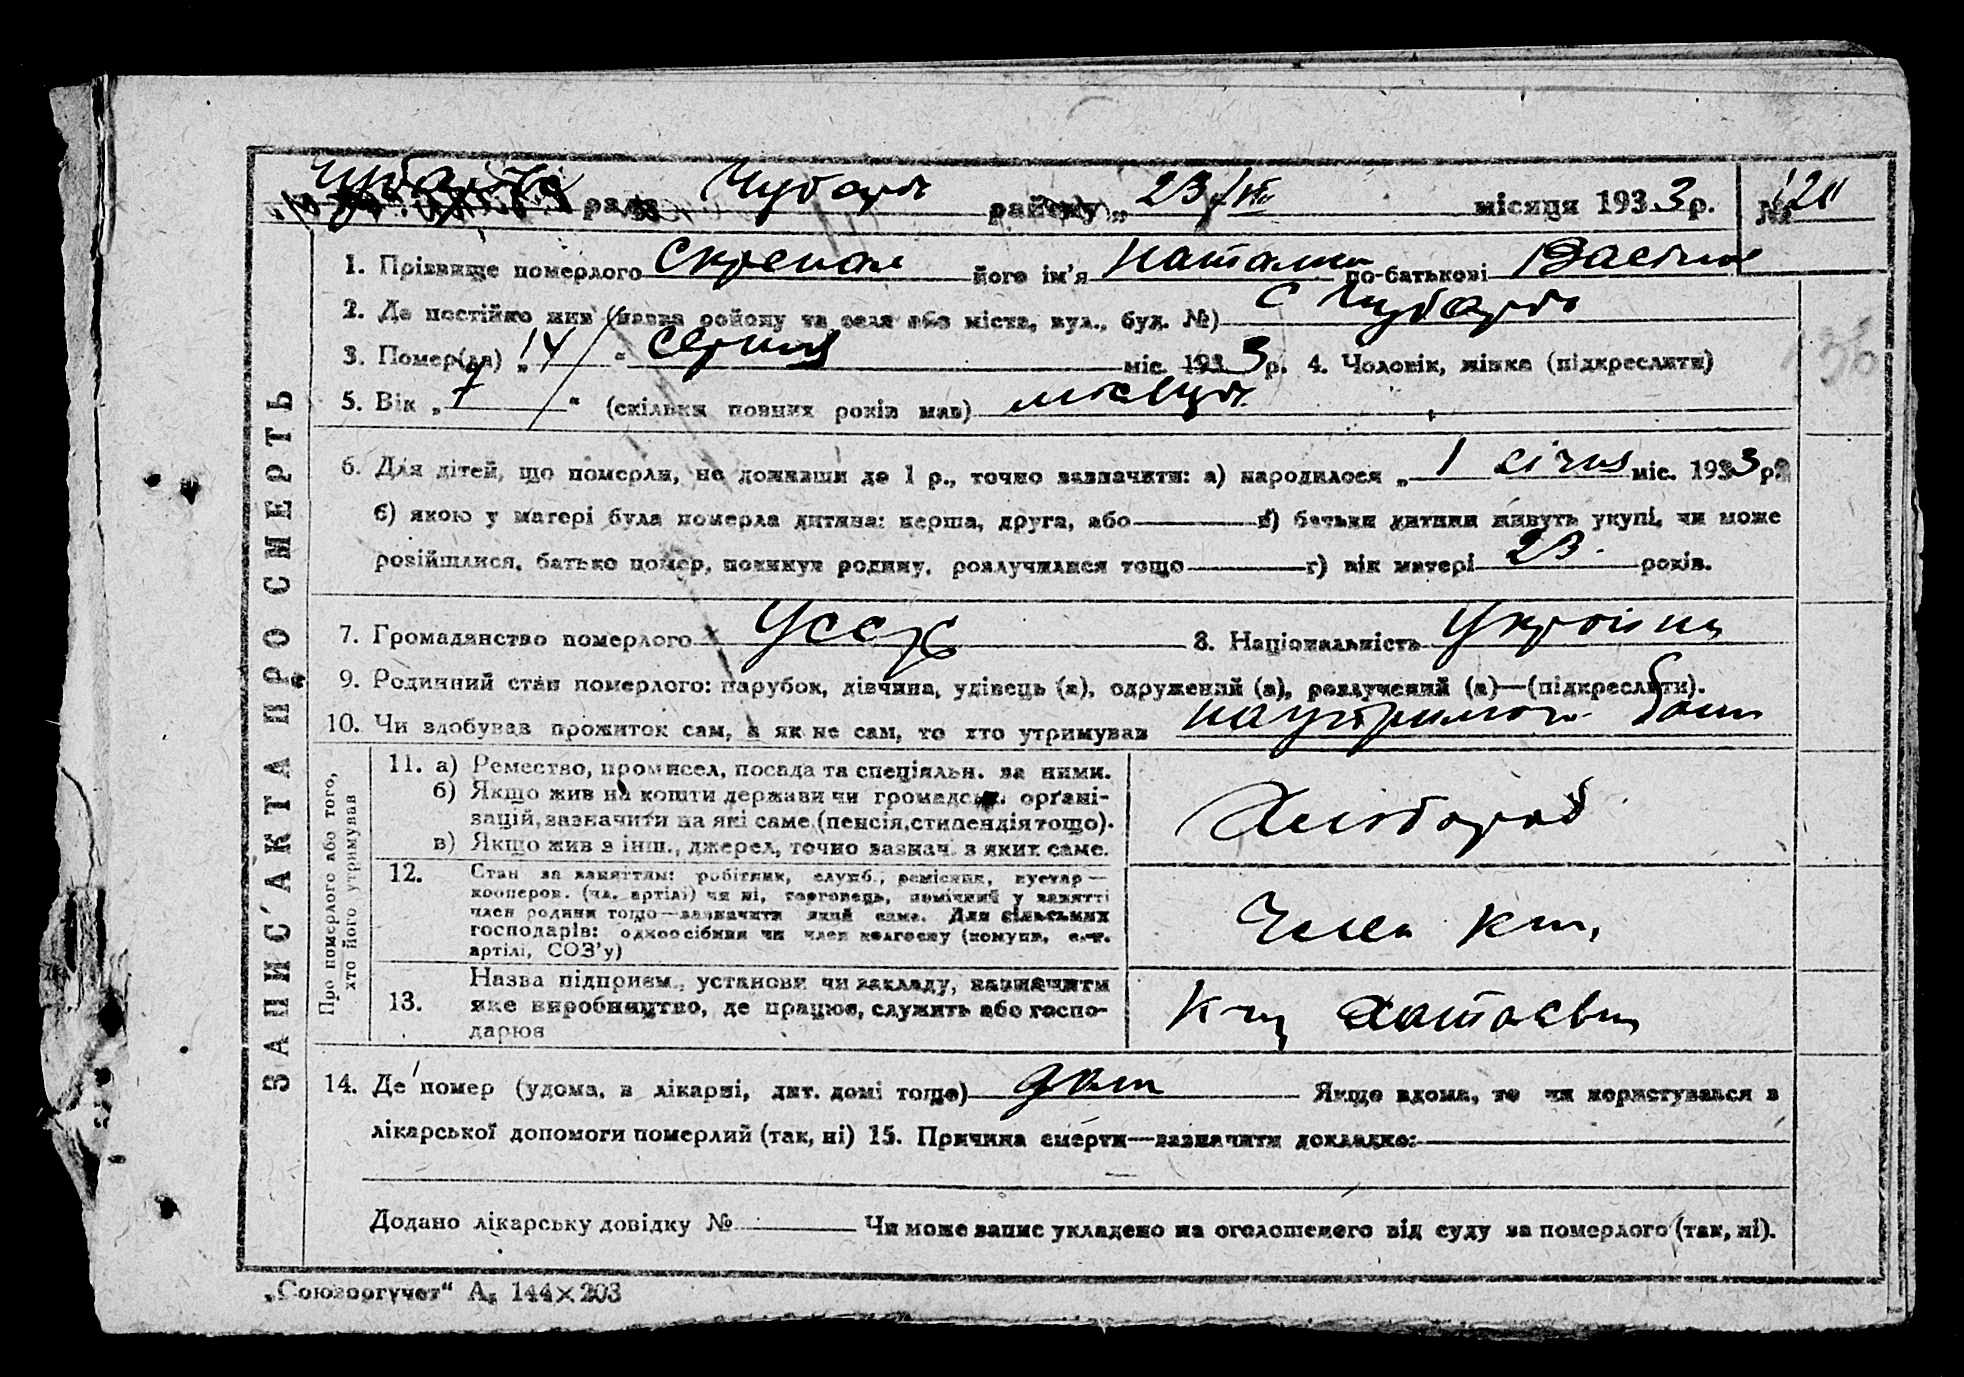 ЗАПИС АКТА ПРО СМЕРТЬ
рада Чубарів району „23/VIII місяця 1933 р. №
1. Прізвище померлого його ім'я Наталка по-батькові
2. Де постійно жив (назва району та села або міста, вул., буд. №) с Чубарів
3. Помер(ла) „14“ серпня міс. 1933 р. 4. Чоловік, жінка (підкреслити)
5. Вік „7“ (скільки повних років мав) місяців
6. Для дітей, що померли, не доживши до 1 р., точно зазначити: а) народилося „1 січня міс. 1933 р.
б) якою у матері була померла дитина: перша, друга, або в) батьки дитини живуть укупі, чи може
розійшлися, батько помер, покинув родину, розлучилися тощо г) вік матері 23 років.
7. Громадянство померлого УССР 8. Національність Україн
9. Родинний стан померлого: парубок, дівчина, удівець (а), одружений (а), розлучений (а)—(підкреслити).
10. Чи здобував прожиток сам, а як не сам, то хто утримував на утриман батьк
Про померлого або того, хто його утримував
11. а) Ремество, промисел, посада та спеціяльн. за ними.
б) Якщо жив на кошти держави чи громадськ. органі-
зацій, зазначити на які саме (пенсія, стипендія тощо).
в) Якщо жив з інш., джерел, точно зазнач. з яких саме.
Хлібороб
12. Стан за заняттям: робітник, служб., ремісник, кустар—
кооперов. (чл. артілі) чи ні, торговець, помічний у занятті
член родини тощо—зазначити який саме. Для сільських
господарів: одноосібник чи член колгоспу (комуни, с.-г.
артілі, СОЗ'у)
Член
13. Назва підприєм., установи чи закладу, зазначити
яке виробництво, де працює, служить або госпо-
дарює
14. Де помер (удома, в лікарні, дит. домі тощо) дом Якщо вдома, то чи користувався з
лікарської допомоги померлий (так, ні) 15. Причина смерти—зазначити докладно:
Додано лікарську довідку № Чи може запис укладено на оголошеного від суду за померлого (так, ні).
„Союзоргучет“ А₅ 144×203